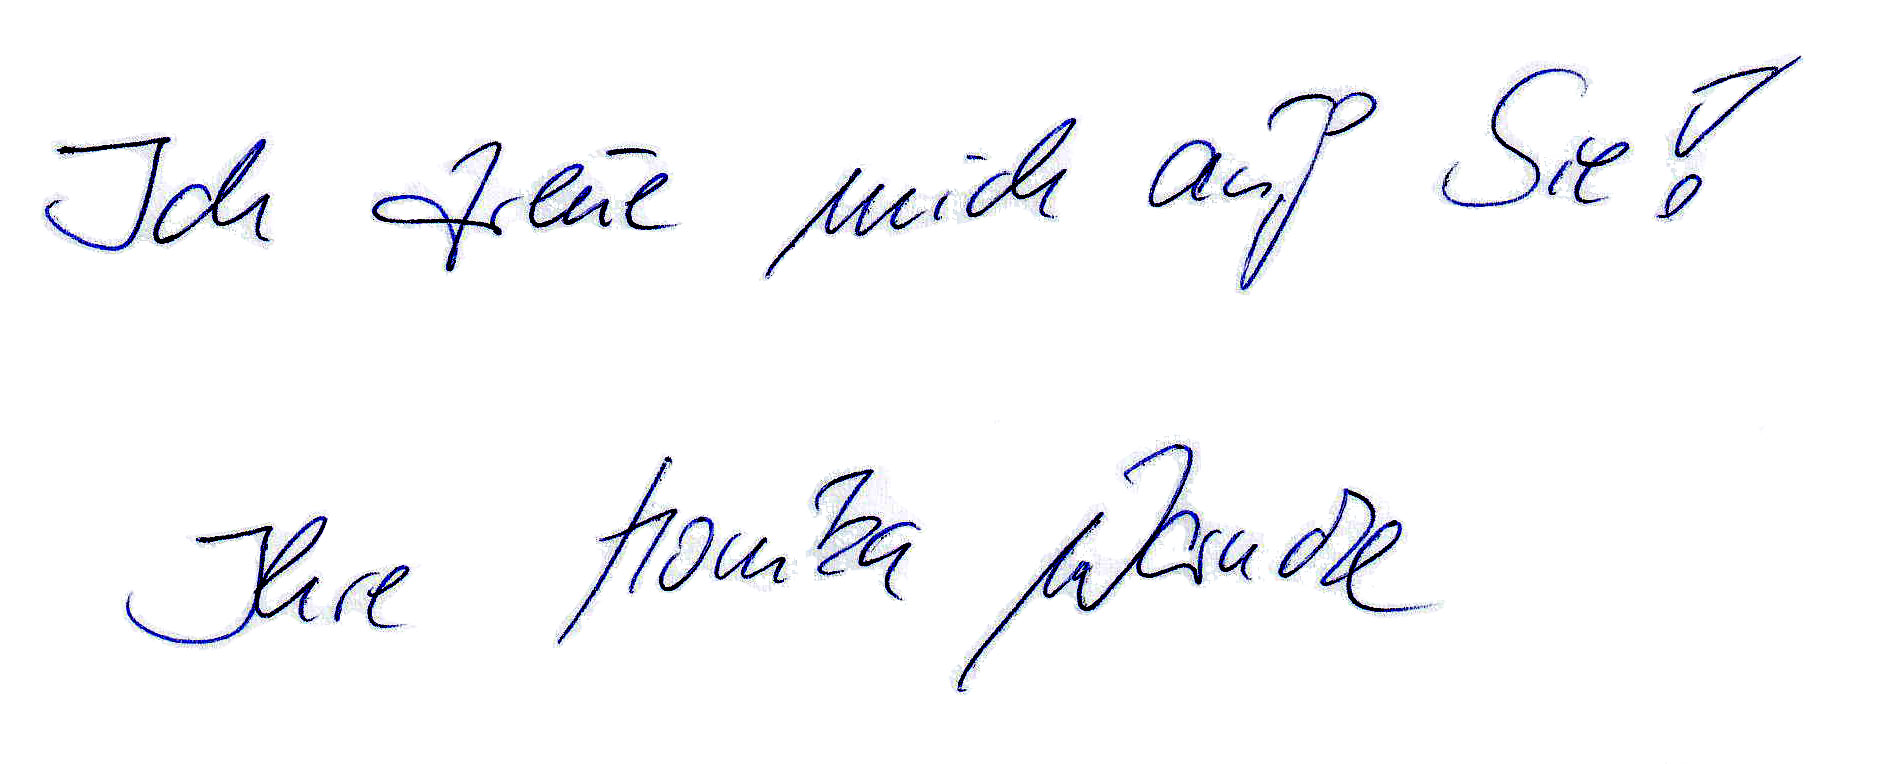 Ich freue mich auf Sie!
Ihre Monika